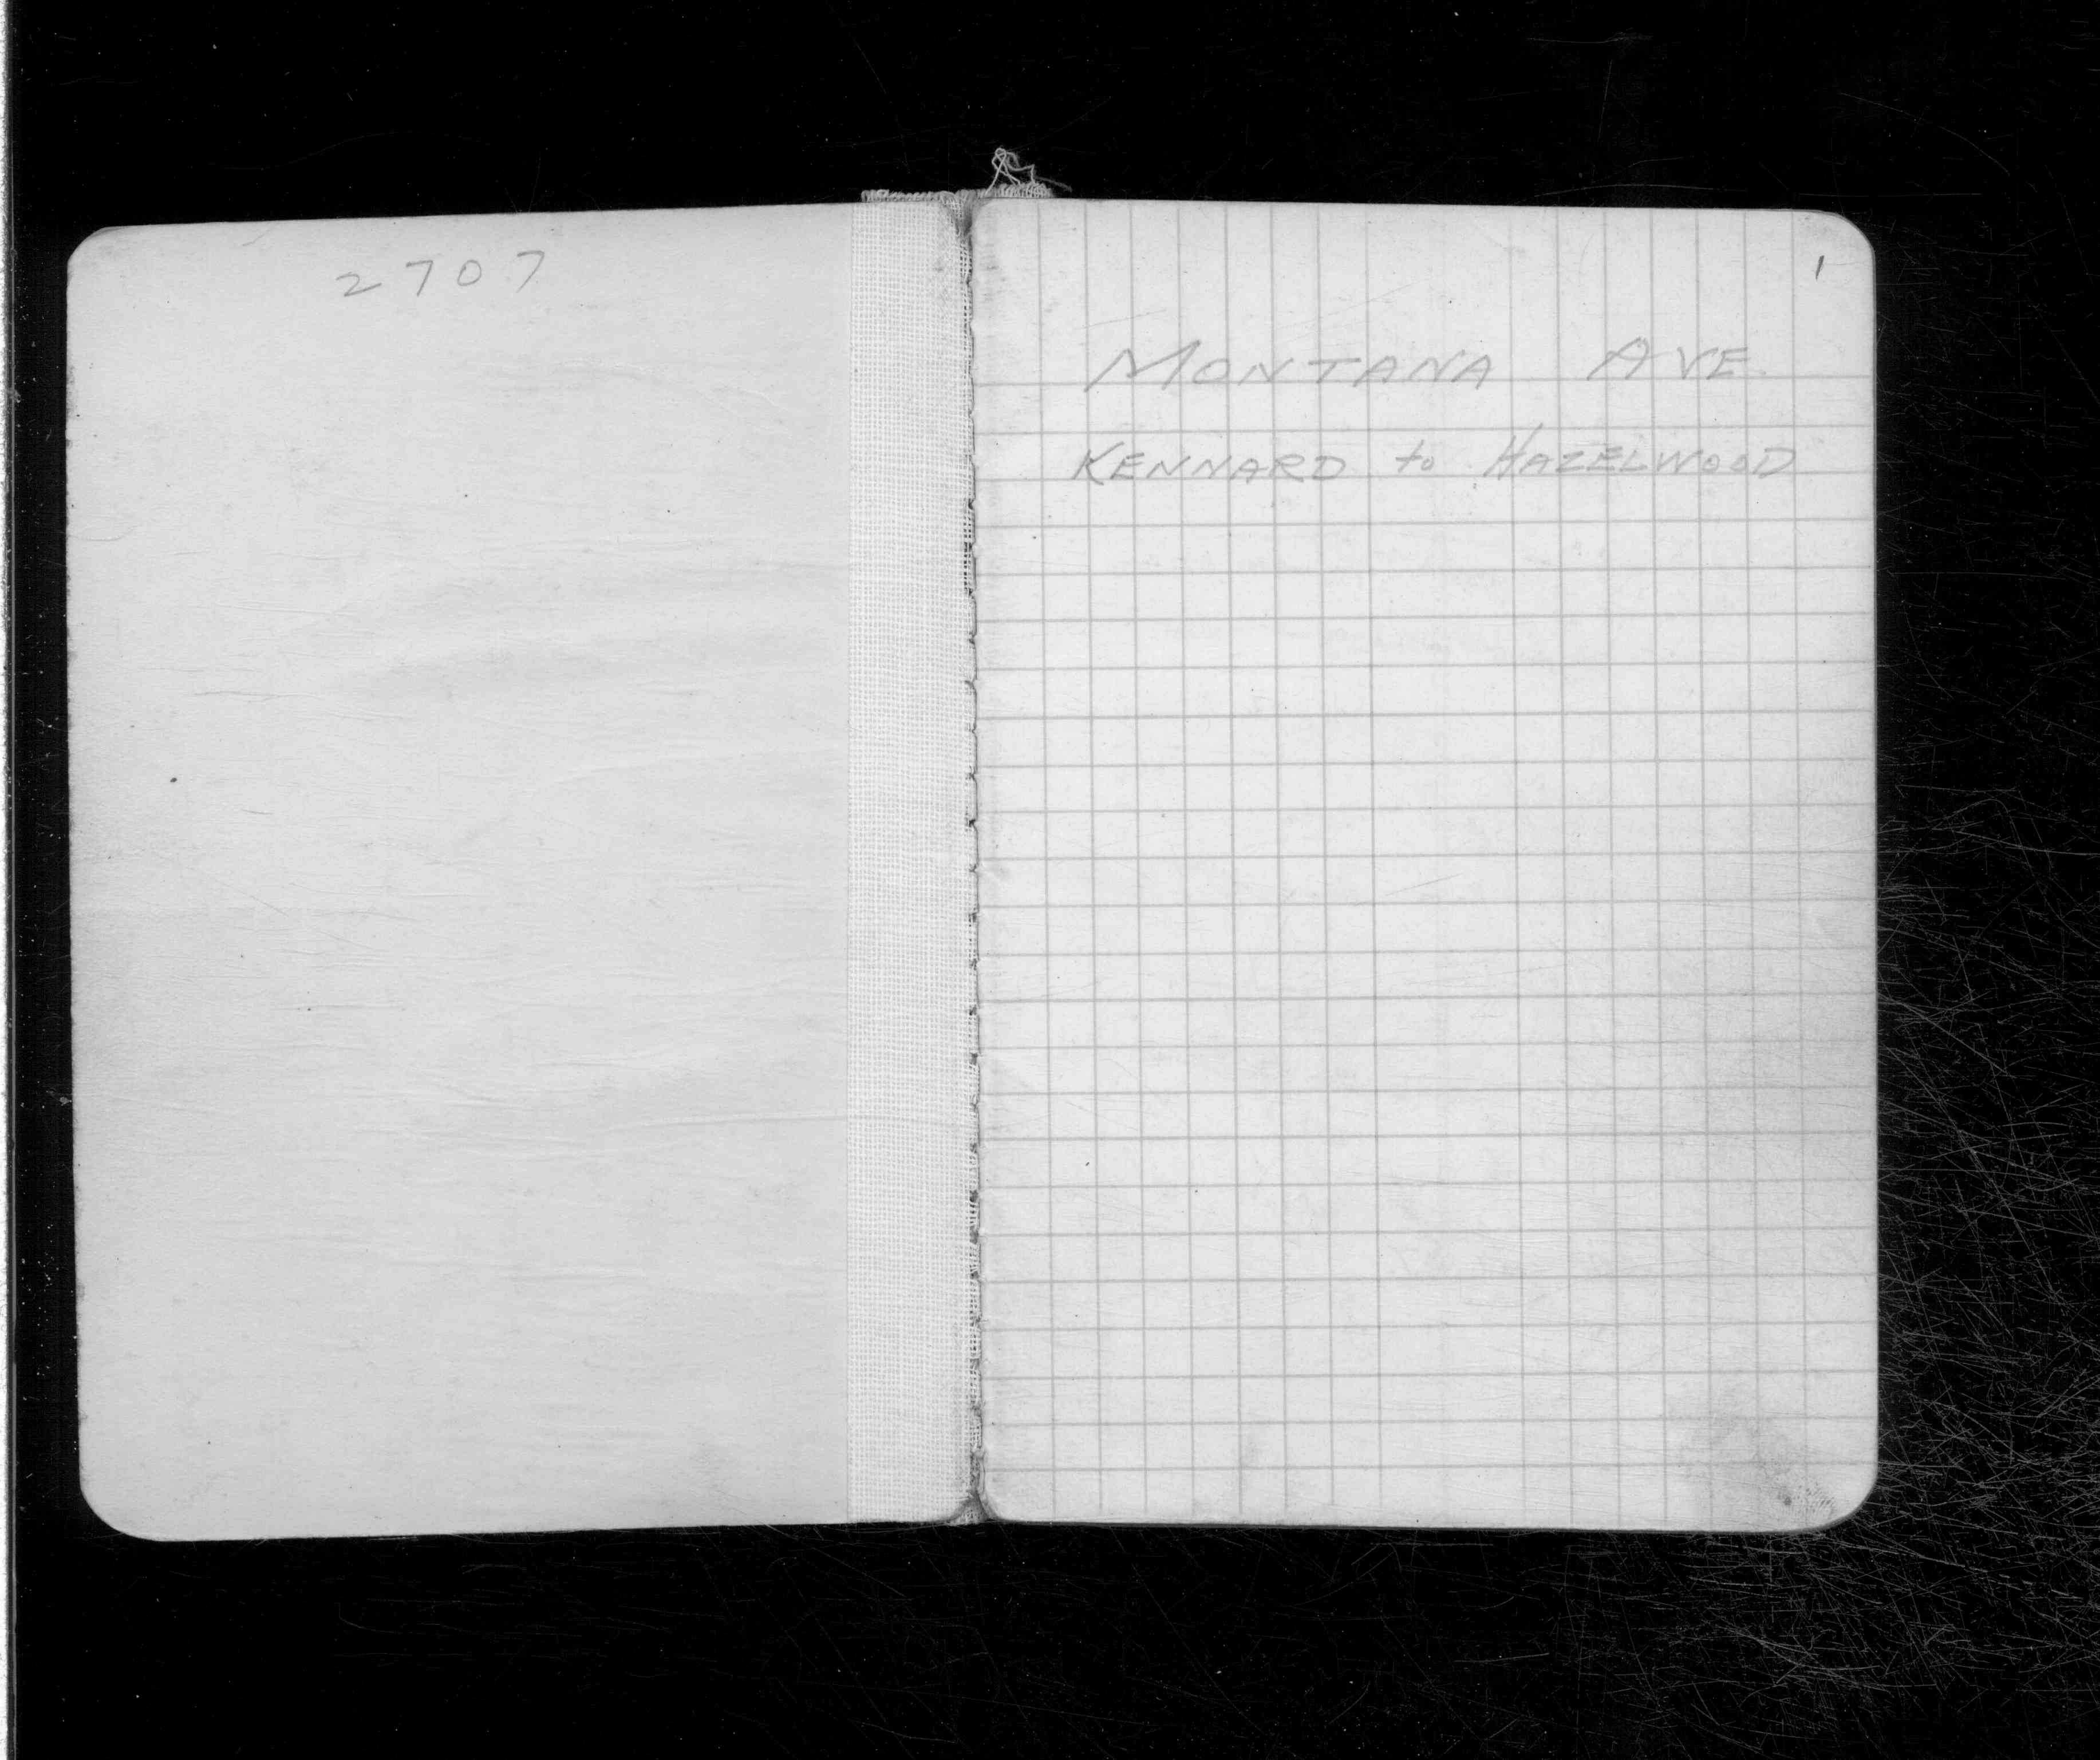 2707
1
MONTANA AVE.
KENNARD to HAZELWOOD